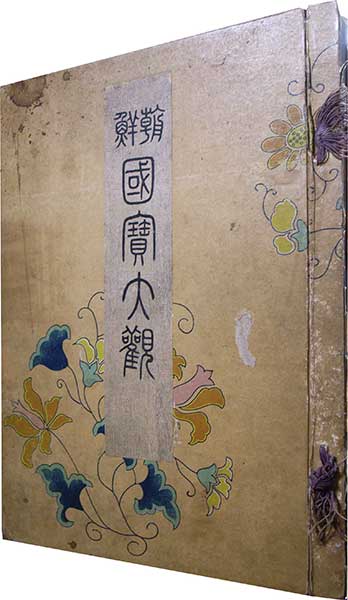 朝鮮
國寶大觀